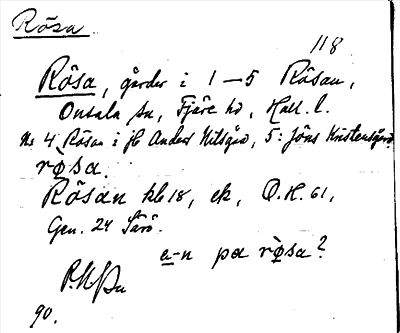 Rösa
118
Rösa, gårdar i 1–5 Rösan,
Onsala sn, Fjäre hd, Hall. l.
No 4 Rösan i jb Anders Nilsgård, 5: Jöns Kristensgård
røsa.
Rösan kb 18, ek, O.H. 61,
Gen. 24 Särö.
a-n pa røsa?
90.